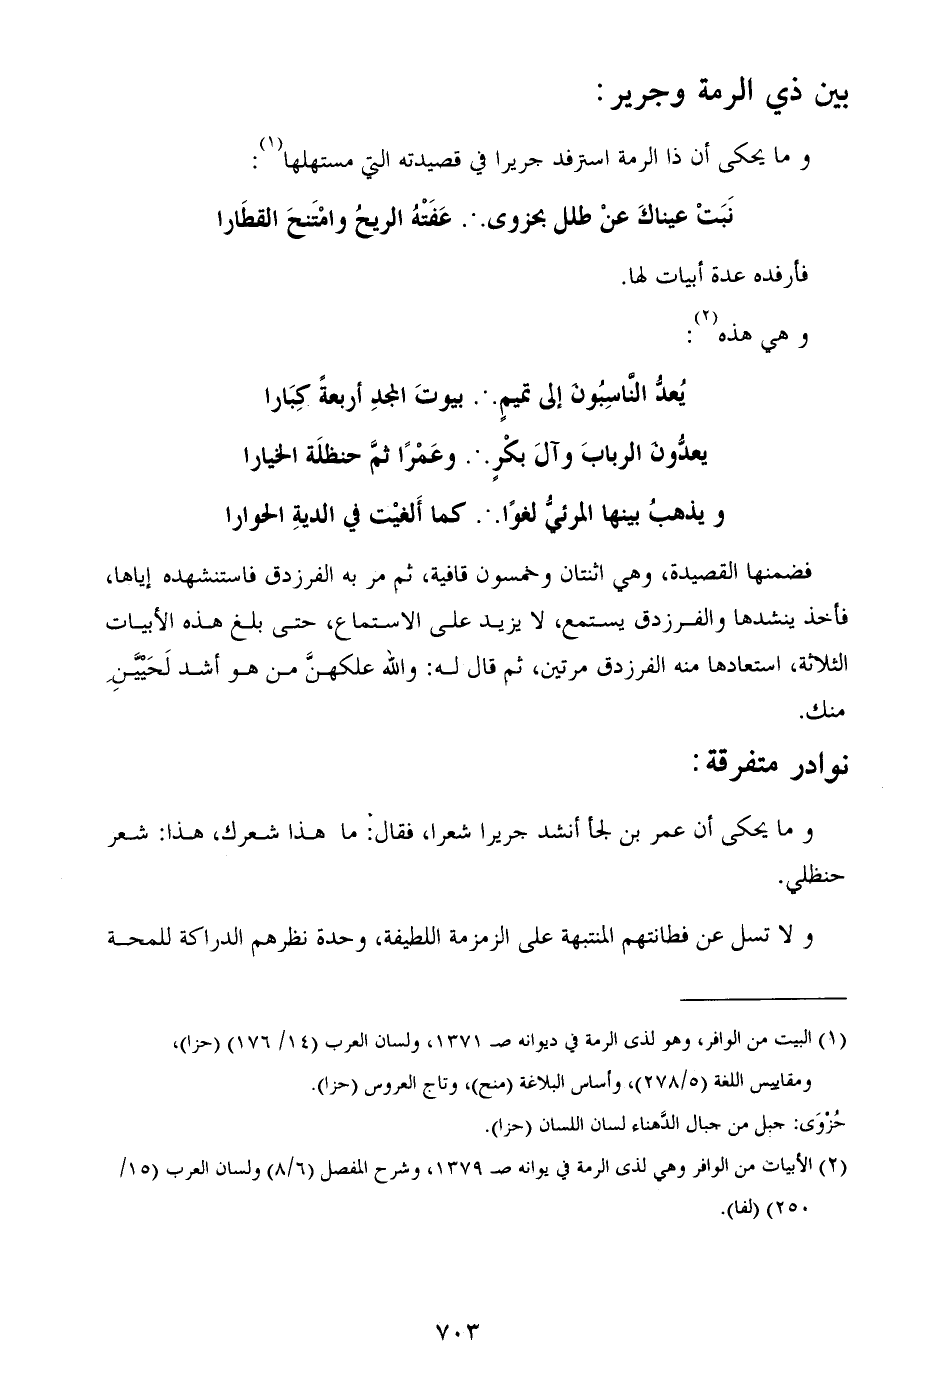 بين ذي الرمة وجرير :
و ما يحكى أن ذا الرمة استرفد جريرا في قصيدته التي مستهلها(١):
نَبَتْ عيناكَ عنْ طلل بحزوى.·. عَفَتْهُ الريحُ وامْتَنحَ القطَارا
فأرفده عدة أبيات لها.
و هي هذه(٢):
يُعدُّ النَّاسِبُونَ إلى تميمٍ.·. بيوتَ المجدِ أربعةً كِبَارا
يعدُّونَ الربابَ وآلَ بكْرٍ.·. وعَمْرًا ثمَّ حنظلَة الخيارا
و يذهبُ بينها المرئيُّ لغوًا.·. كما أَلغيْت في الديةِ الحوارا
فضمنها القصيدة، وهي اثنتان وخمسون قافية، ثم مر به الفرزدق فاستنشهده إياها،
فأخذ ينشدها والفرزدق يستمع، لا يزيد على الاستماع، حتى بلغ هذه الأبيات
الثلاثة، استعادها منه الفرزدق مرتين، ثم قال له: والله علكهنَّ من هو أشد لَحَيَّيْنِ
منك.
نوادر متفرقة :
و ما يحكى أن عمر بن لجأ أنشد جريرا شعرا، فقال: ما هذا شعرك، هذا: شعر
حنظلي.
و لا تسل عن فطانتهم المنتبهة على الزمزمة اللطيفة، وحدة نظرهم الدراكة للمحة
(١) البيت من الوافر، وهو لذى الرمة في ديوانه صـ ١٣٧١، ولسان العرب (١٤/ ١٧٦) (حزا)،
ومقاييس اللغة (٢٧٨/٥)، وأساس البلاغة (منح)، وتاج العروس (حزا).
حُزْوَى: جبل من جبال الدَّهناء لسان اللسان (حزا).
(٢) الأبيات من الوافر وهي لذى الرمة في يوانه صـ ١٣٧٩، وشرح المفصل (٨/٦) ولسان العرب (١٥/
٢٥٠) (لفا).
٧٠٣